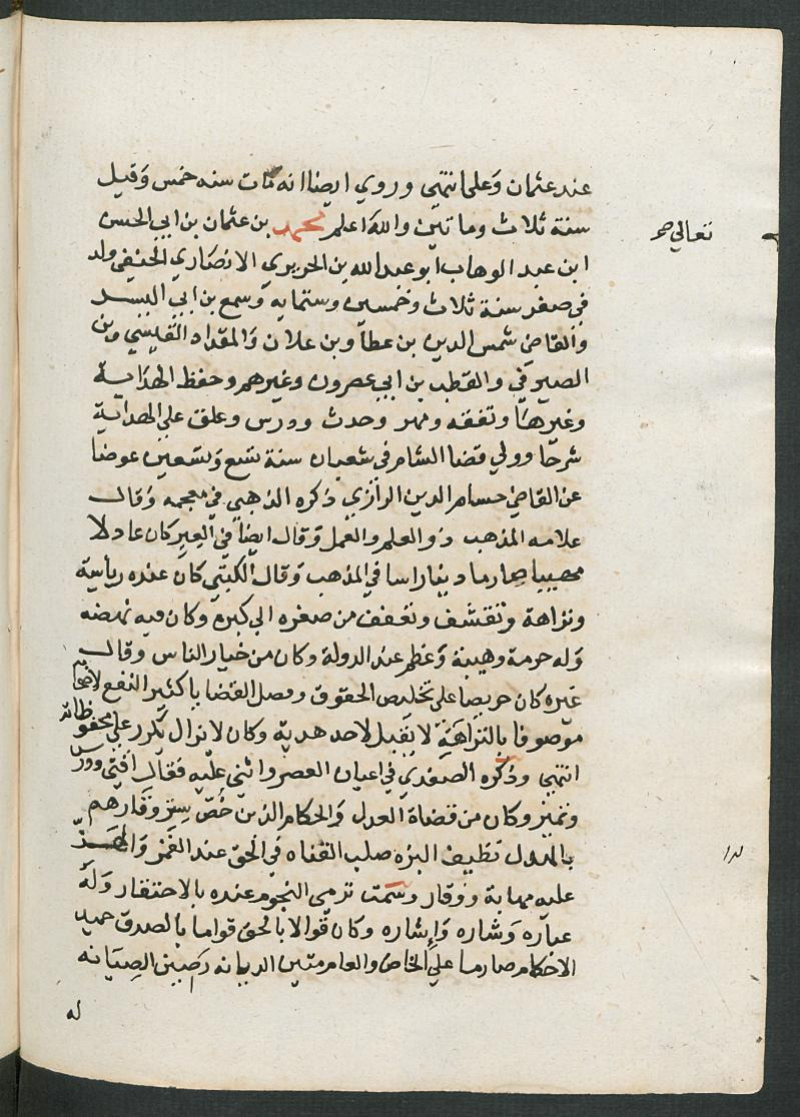 عند عثمان وعلى انتهى وروي ايضا انه مات سنه خمس وقيل
سنة ثلاث وماتين والله اعلم محمد بن عثمان بن ابي الحسن
تعالى صح
ابن عبد الوهاب ابو عبد الله بن الحريري الانصاري الحنفي ولد
في صفر سنة ثلاث وخمسين وستمايه وسمع بن ابي اليسر
والقاضي شمس الدين بن عطا وبن علان والمقداد القيسي وبن
الصيرفي والقطب بن ابي عصرون وغيرهم وحفظ الهداية
وغيرها وتفقه ومهر وحدث ودرس وعلق على الهداية
شرحا وولي قضا الشام في شعبان سنة تسع وتسعين عوضا
عن القاضي حسام الدين الرازي ذكره الذهبي في معجمه وقال
علامه المذهب ذو العلم والعمل وقال ايضا في العبر كان عادلا
مهيبا صارما دينا راسا في المذهب وقال الكتبي كان عنده رياسة
ونزاهة وتقشف وتعفف من صغره الى كبره وكان فيه نهضه
وله حرمة وهيبة وعظم عند الدولة وكان من خيار الناس وقال
غيره كان حريصا على تخليص الحقوق وفصل القضايا كثير النفع لاصحابه
موصوفا بالنزاهة لا يقبل لاحد هدية وكان لا يزال يكرر على محفوظاته
انتهى وذكره الصفدي في اعيان العصر واثنى عليه فقال افتى ودرس
وتميز وكان من قضاة العدل والحكام الذين خص ستر وقارهم
بالسدل نظيف البزه صلب القناه في الحق عند الغمز والهز
عليه مهابة ووقار وسمت ترمى النجوم عنده بالاحتقار وله
عباره وشاره وإشاره وكان قوالا بالحق قواما بالصدق حميد
الاحكام صارما على الخاص والعام متين الديانه رصين الصيانه
له